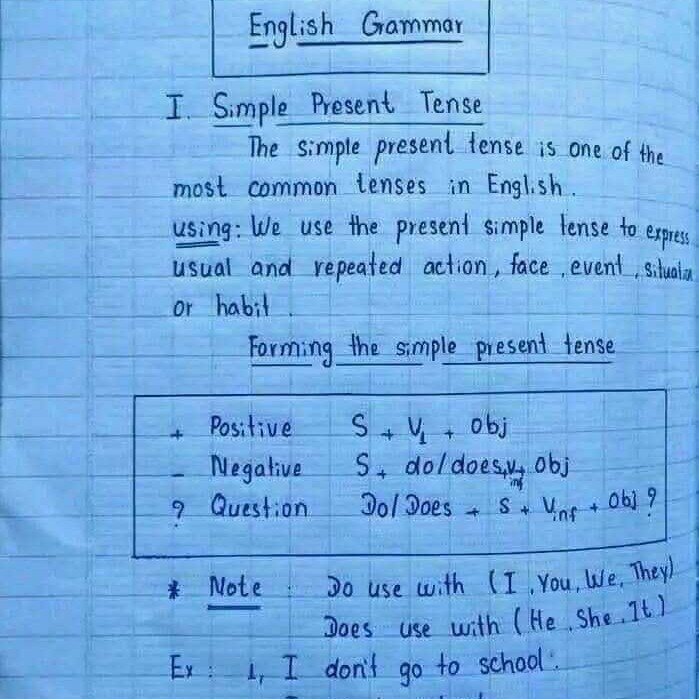 English Grammar
I. Simple Present Tense
The simple present tense is one of the
most common tenses in English.
using: We use the present simple tense to express
usual and repeated action, face, event, situation
or habit.
Forming the simple present tense
+ Positive S + V1 + obj
- Negative S + do/does + V inf + obj
? Question Do/Does + S + Vinf + Obj ?
* Note : Do use with (I, You, We, They)
Does use with (He, She, It)
Ex : 1, I don't go to school.